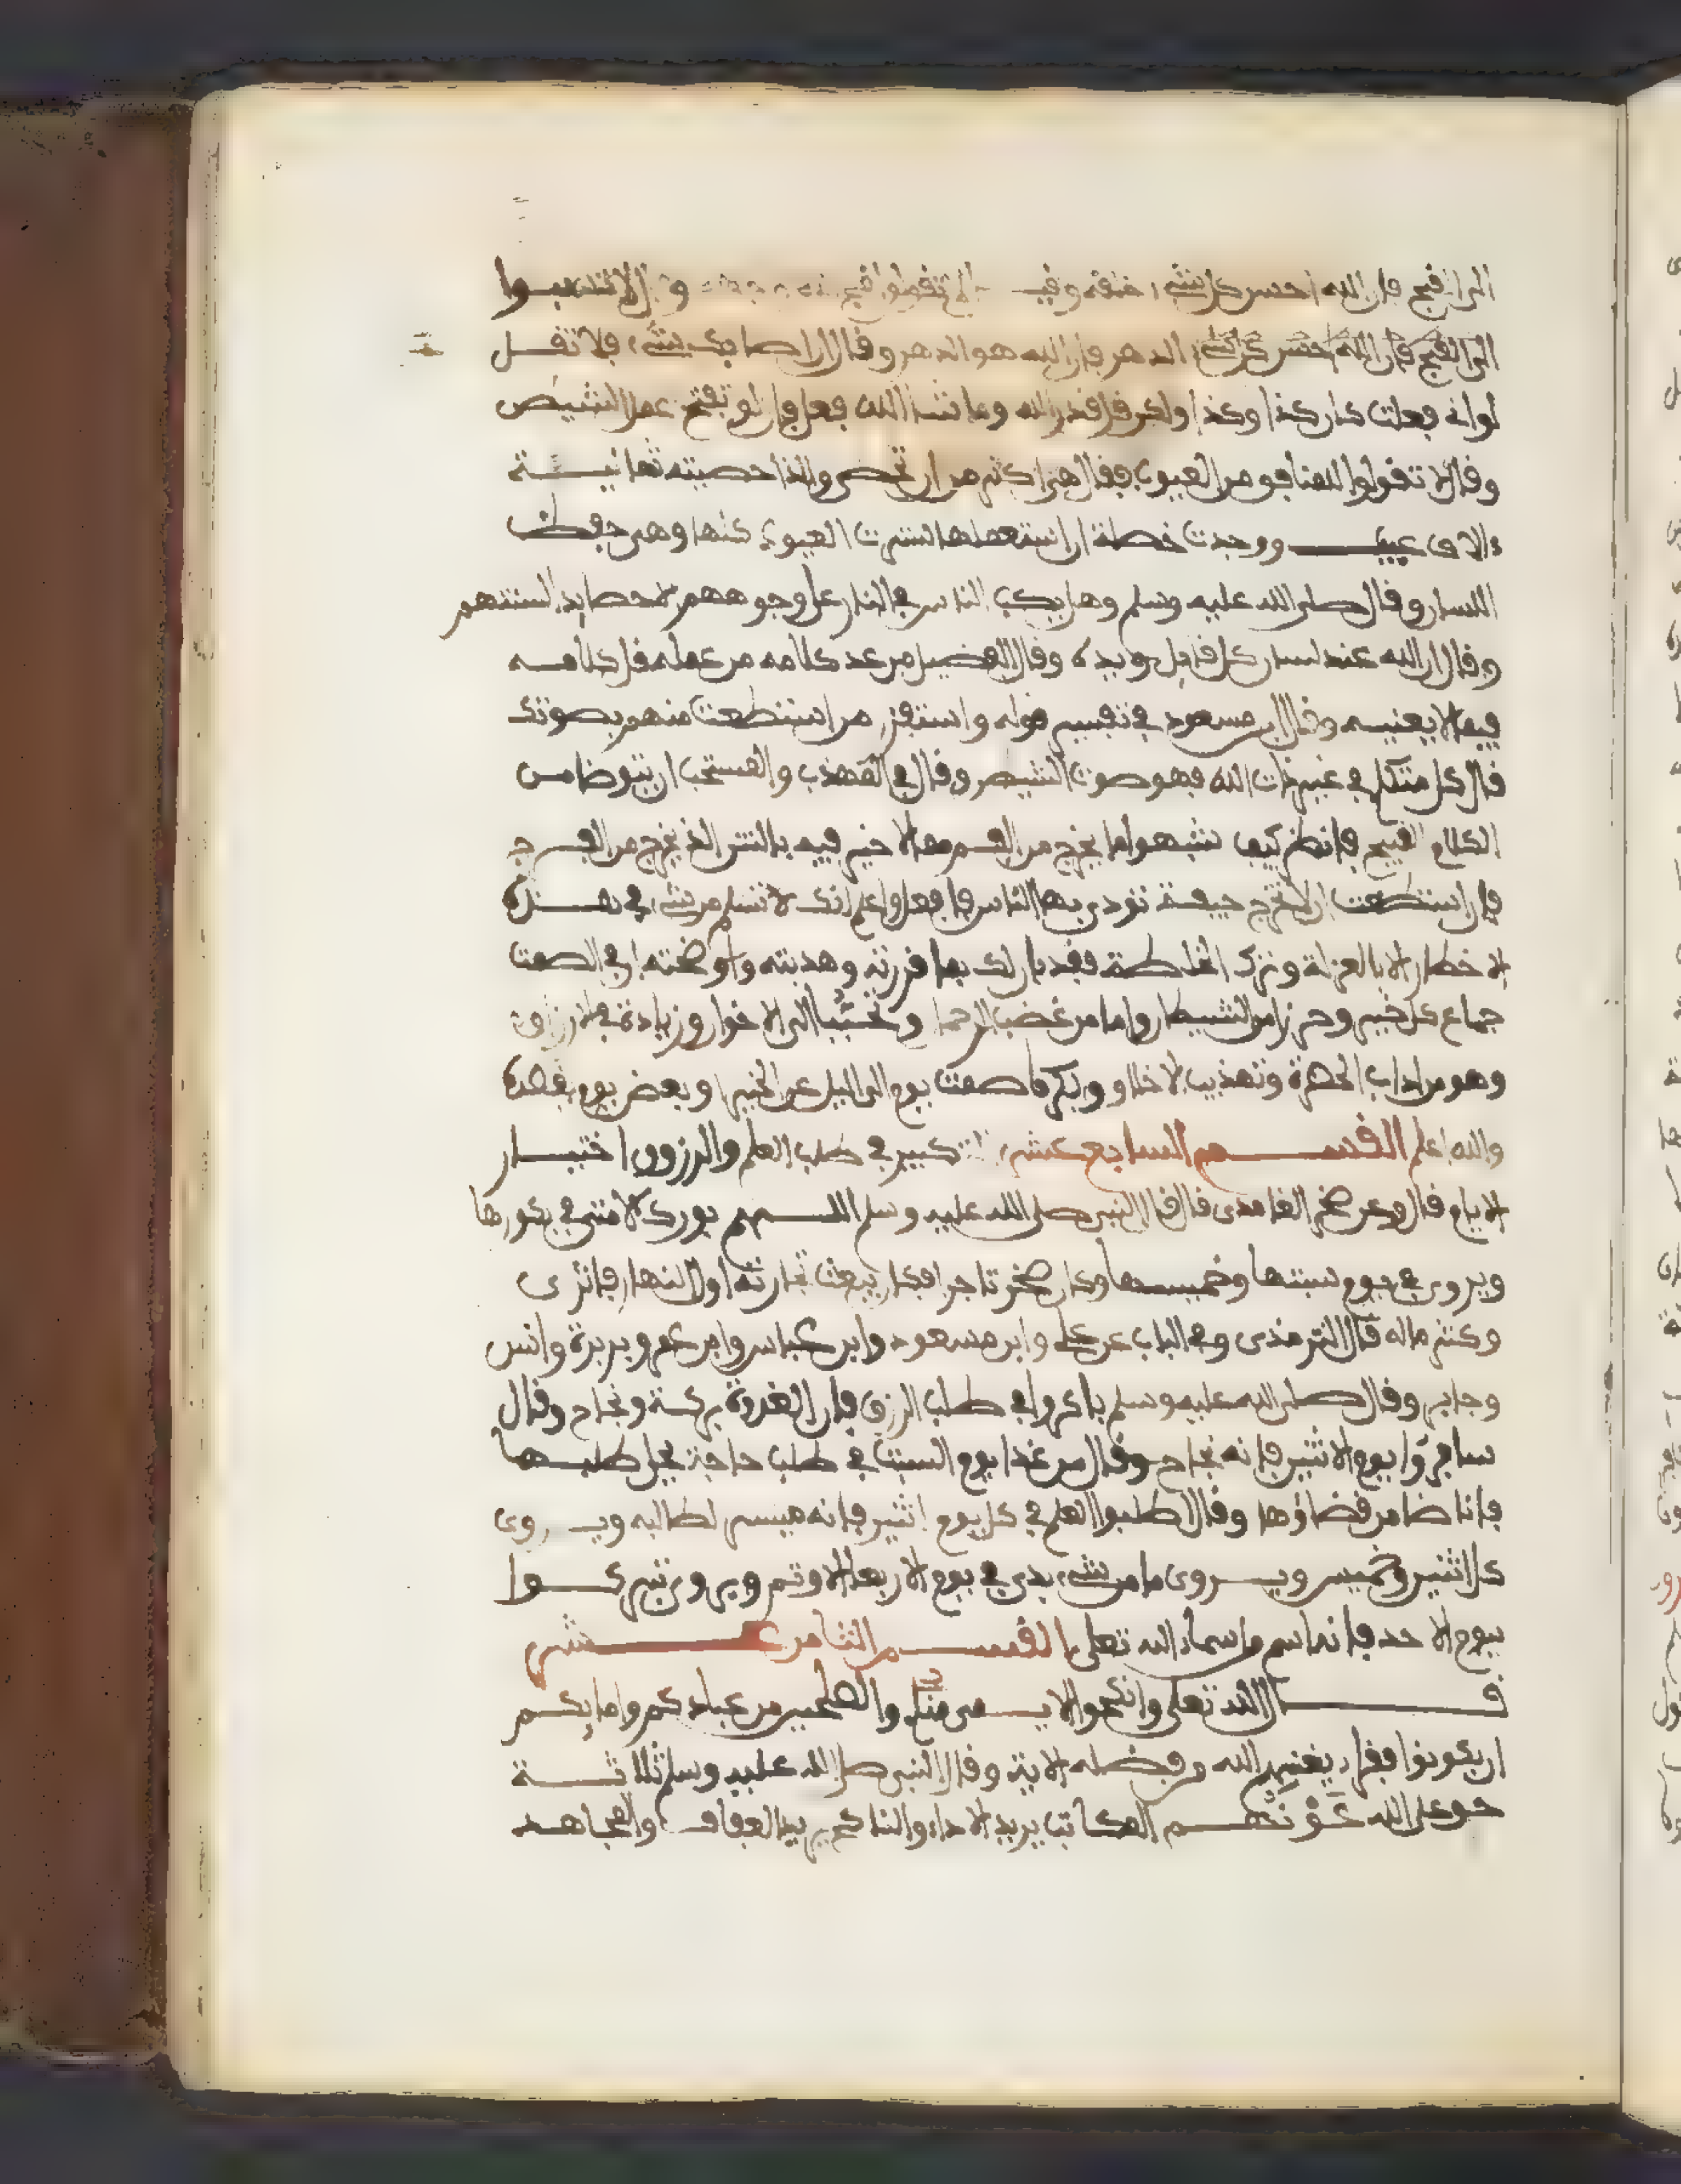 الى القبح فإن الله احسن كل شيء خلقه وفيـ لا تقولوا قبح الله وجهه و لا تنسبوا
الى القبح فإن الله احسن كل شيء الدهر فإن الله هو الدهر وقال إن اصابك شيء فلا تقل
لو انى فعلت كان كذا وكذا ولكن قل قدر الله وما شاء الله فعل فإن لو تفتح عمل الشيطن
وقال لا تقولوا للمنافق من العيوب فقال هي اكثر من ان تحصى والذي احصيته ثمانية
ءالاف عيب ووجدت خصلة ان استعملها سترت العيوب كلها وهي حفظ
اللسان وقال صلى الله عليه وسلم وهل يكب الناس في النار على وجوههم الا حصايد السنتهم
وقال ان الله عند لسان كل قايل ويده وقال الفضيل من عد كلامه من عمله قل كلامه
فيما لا يعنيه وقال ابن مسعود في تفسير قوله واستفزز من استطعت منهم بصوتك
قال كل متكلم في غير ذات الله فهو صوت الشيطن وقال في المهذب والمستحب ان يتوضا من
الكلام القبيح فانظر كيف شبهوا ما يخرج من الفم مما لا خير فيه بالشر الذي يخرج من الفرج
فإن استطعت ان لا تخرج جيفة تؤدي بها الناس فافعل واعلم انك لا تسلم من شيء في هذه
الاخطار الا بالعزلة وترك المخالطة فقد بان لك بما قررته وهدبته واوضحته ان في الصمت
جماع كل خير وحرزا من الشيطان وامانا من غضب الرحمن وتحببا الى الاخوان وزيادة في الارزاق
وهو من اداب الحضرة وتهذيب الاخلاق ويكره صمت يوم الى الليل عن الخير وبعض يوم بقصده
والله اعلم القسم السابع عشر التبكير في طلب العلم والرزق واختيار
الايام قال وعن صخر الغامدى قال قال النبي صلى الله عليه وسلم اللهم بورك لامتي في بكورها
ويروى في يوم سبتها وخميسها وكان صخر تاجرا فكان يبعث تجارته اول النهار فاثرى
وكثر ماله قال الترمذى وفي الباب عن علي وابن مسعود وابن عباس وابن عمر وبريرة وانس
وجابر وقال صلى الله عليه وسلم باكروا في طلب الرزق فإن الغدوة بركة ونجاح وقال
سافروا يوم الاثنين فإنه نجاح وقال من غدا يوم السبت في طلب حاجة يحل طلبها
فانا ضامن قضاؤها وقال اطلبوا العلم في كل يوم اثنين فإنه ميسر لطالبه ويروى
كل اثنين وخميس ويروى ما من شيء بدئ في يوم الاربعاء الا وتم ويروى تبركوا
بيوم الاحد فإنه اسم من اسماء الله تعلى القسم الثامن عشر
قال الله تعلى وانكحوا الايمى منكم والصلحين من عبادكم وامايكم
ان يكونوا فقراء يغنيهم الله من فضله الاية وقال النبي صلى الله عليه وسلم ثلاثة
حق على الله عونهم المكاتب يريد الاداء والناكح يريد العفاف والمجاهد